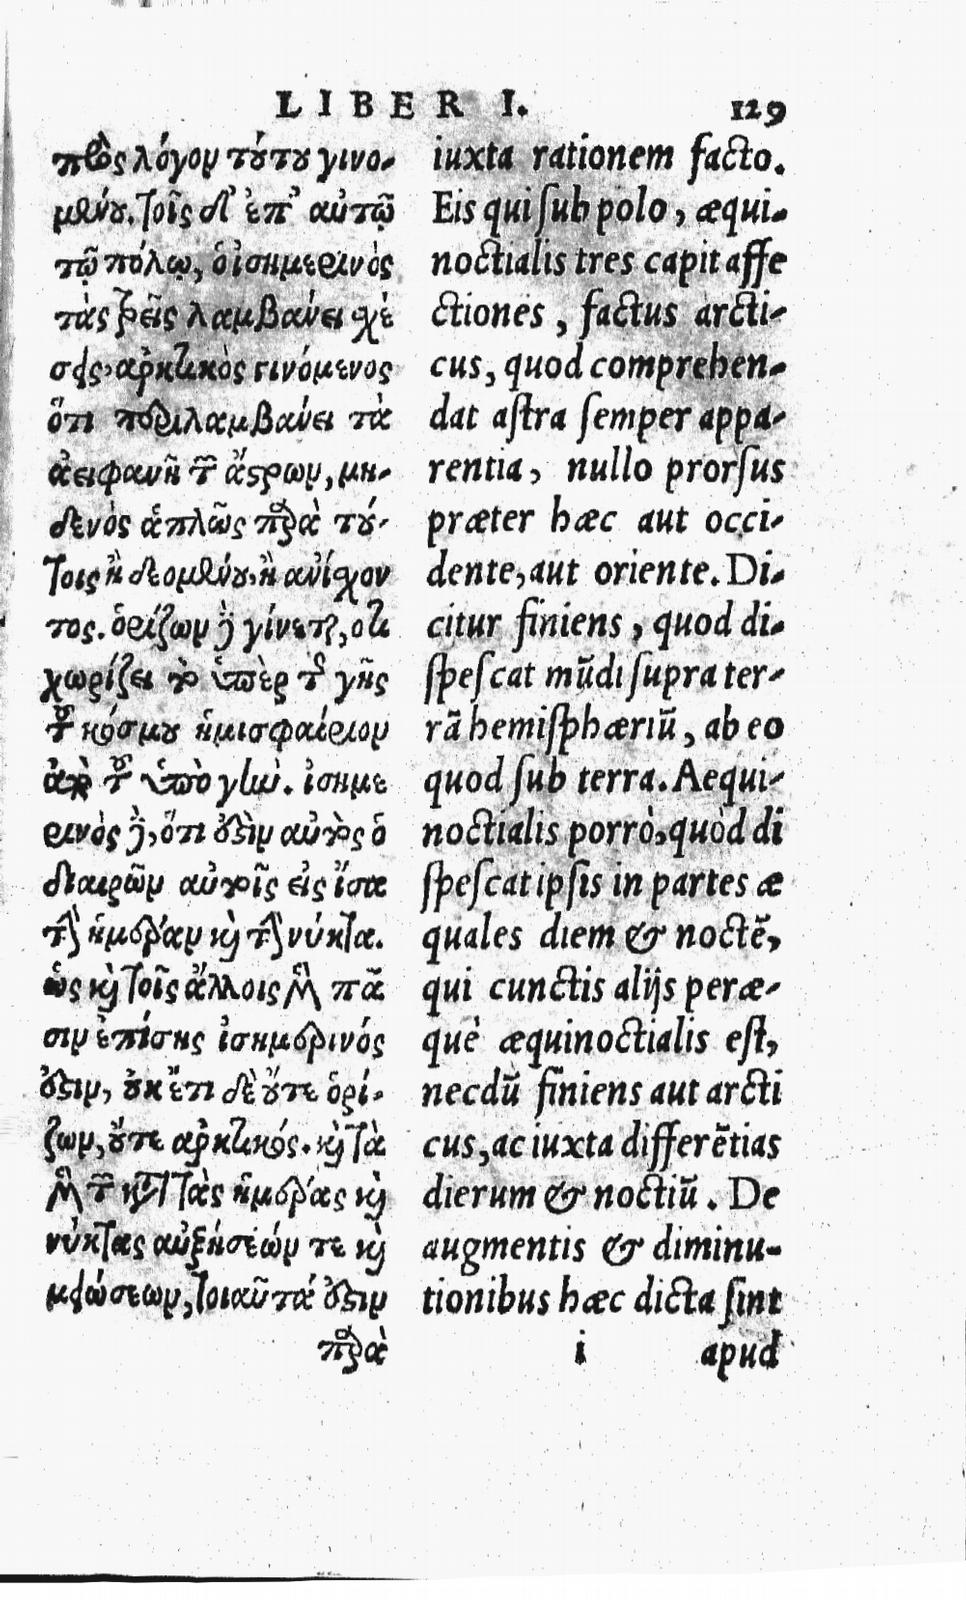 LIBER I. 129
πρὸς λόγον τούτου γινο-
μένου. τοῖς δ' ἐπ' αὐτῷ
τῷ πόλῳ, ὁ ἰσημερινὸς
τὰς τρεῖς λαμβάνει σχέ
σεις, ἀρκτικὸς γινόμενος
ὅτι περιλαμβάνει τὰ
ἀειφανῆ τῶν ἄστρων, μη-
δενὸς ἁπλῶς παρὰ τού-
τοις ἢ δυομένου, ἢ ἀνίσχον
τος. ὁρίζων δὲ γίνεται, ὅτι
χωρίζει τὸ ὑπὲρ τῆς γῆς
τοῦ κόσμου ἡμισφαίριον
ἀπὸ τοῦ ὑπὸ γῆν. ἰσημε
ρινὸς δὲ, ὅτι οὗτός ἐστιν αὐτοῖς ὁ
διαιρῶν αὐτοῖς εἰς ἴσα
τὴν ἡμέραν καὶ τὴν νύκτα.
ὡς καὶ τοῖς ἄλλοις μὲν πᾶ
σιν ἐπίσης ἰσημερινός
ἐστιν, οὐκ ἔτι δὲ οὔτε ὁρί-
ζων, οὔτε ἀρκτικός. καὶ τὰ
μὲν τῶν κατὰ τὰς ἡμέρας καὶ
νύκτας αὐξήσεών τε καὶ
μειώσεων, τοιαῦτά ἐστιν
παρὰ
iuxta rationem facto.
Eis qui sub polo, æqui-
noctialis tres capit affe
ctiones, factus arcti-
cus, quod comprehen-
dat astra semper appa-
rentia, nullo prorsus
præter hæc aut occi-
dente, aut oriente. Di-
citur finiens, quod di-
spescat mūdi supra ter-
rā hemisphæriū, ab eo
quod sub terra. Aequi-
noctialis porrò, quòd di
spescat ipsis in partes æ
quales diem & noctē,
qui cunctis alijs peræ-
què æquinoctialis est,
necdū finiens aut arcti
cus, ac iuxta differētias
dierum & noctiū. De
augmentis & diminu-
tionibus hæc dicta sint
i apud